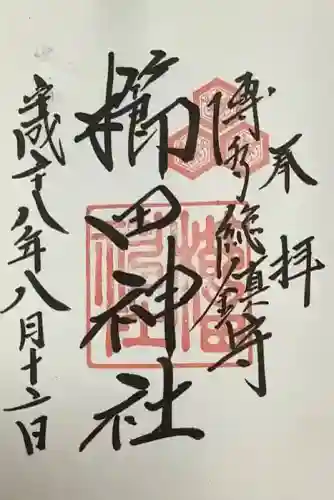 奉拝
博多総鎮守
櫛田神社
平成二十八年八月十二日